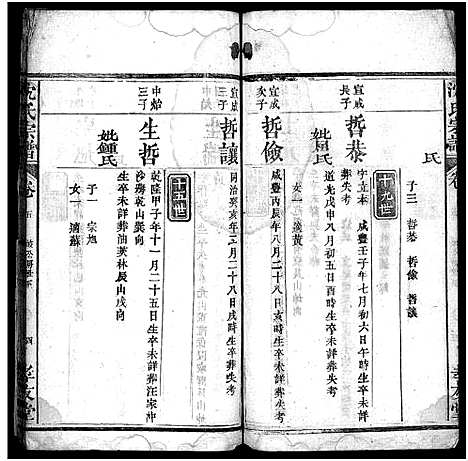 沈氏宗譜
卷
氏
子三 哲恭 哲儉 哲讓
十九世
宣成長子
哲恭
字立本 咸豐壬子年七月初六日午時生卒未詳
葬失考
妣周氏
道光戊申八月初五日酉時生卒葬失考
女一 適黃
宣成次子
哲儉
咸豐丙辰年八月二十八日亥時生卒葬失考
三子
哲讓
同治癸亥年三月二十八日戌時生卒葬失考
十九世
中始三子
生哲
乾隆甲子年十一月二十五日生卒未詳葬汪家冲
沙塝乾山巽向
妣鍾氏
生卒未詳葬油茨林辰山戌向
子一 宗旭
女一 適蘇
沈氏宗譜
卷
五
四
孝友堂